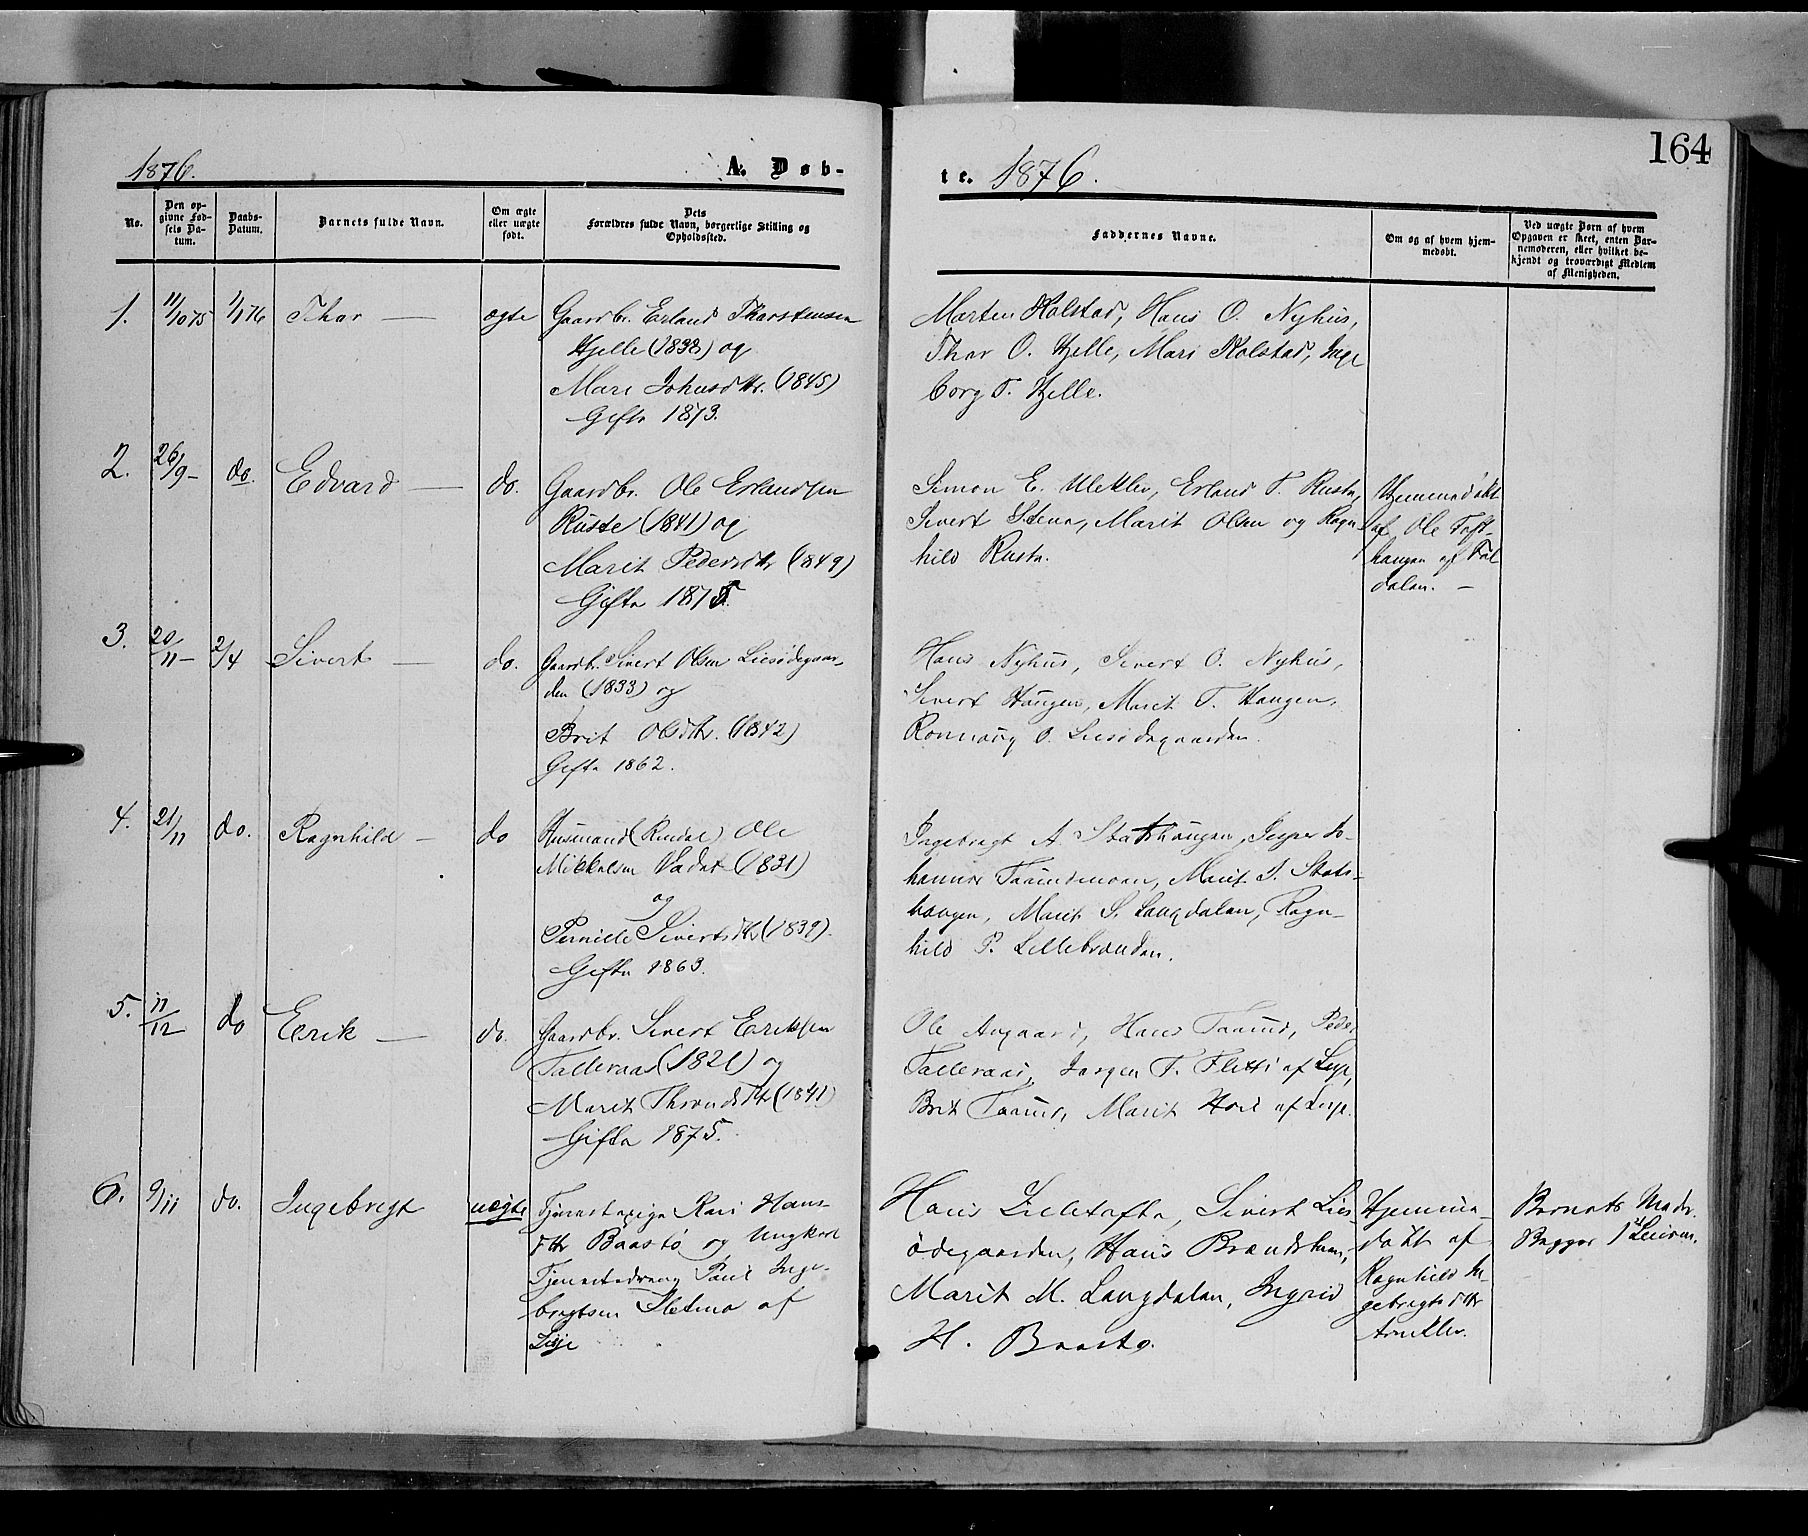 164
1876. A. Døb-
te. 1876.
No.
Den op-
givne Fød-
sels Da-
tum.
Daabs-
Datum.
Barnets fulde Navn.
Om ægte
eller uægte
født.
Dets
Forældres fulde Navn, borgerlige Stilling og
Opholdssted.
Faddernes Navne.
Om og af hvem hjem-
medøbt.
Ved uægte Børn af hvem
Opgaven er skeet, enten Bar-
nemoderen, eller hvilket be-
kjendt og troværdigt Medlem
af Menigheden.
1. 11/10 75 1/1 76 Thor — ægte Gaardbr. Erland Thorstensen
Hjelle (1838) og
Mari Johnsdtr. (1845)
Gifte 1873.
Morten Kolstad, Hans O. Nyhus,
Thor O. Hjelle, Mari Kolstad, Inge
borg T. Hjelle.
2. 26/9 - do. Edvard — do. Gaardbr. Ole Erlandsen
Ruste (1841) og
Marit Pedersdtr (1849)
Gifte 1875.
Simon E. Uleklev, Erland T. Ruste,
Sivert Stene, Marit Olsen og Ragn-
hild Ruste.
Hjemmedøbt
af Ole Toft-
haugen af
dalen. —
3. 20/11 - 2/4 Sivert — do. Gaardbr. Sivert Olsen Liesødegaar-
den (1833) og
Brit Olsdtr. (1842)
Gifte 1862.
Hans Nyhus, Sivert O. Nyhus,
Sivert Haugen, Marit T. Haugen,
Ronnaug O. Liesødegaarden.
4. 21/11 do. Ragnhild — do Husmand (Rindal) Ole
Mikkelsen (1831)
og
Pernille Sivertsdtr (1839).
Gifte 1863.
Ingebrigt A. Statshaugen, Jesper Jo-
hannes Taaundmoen, Marit J. Stats-
haugen, Marit S. Langdalen, Ragn-
hild P. Lillebrænden.
5. 11/12 do Erik — do. Gaardbr. Sivert Eriksen
Talleraas (1821) og
Marit Throndsdtr (1841)
Gifte 1875.
Ole Angaard, Hans Taaund, Peder
Talleraas, Jørgen T. Fletti af Lesje,
Brit Taaund, Marit Hole af Lesje.
6. 9/11 do. Ingebregt uægte Tjenestepige Kari Hans-
dtr Baastø og Ungkarl
Tjenestedreng Paul Inge-
bregtsen Sletmo af
Lesje
Hans Lilletofte, Sivert Lies-
ødegaarden, Hans Brændshaug,
Marit M. Langdalen, Ingrid
H. Baastø.
Hjemme-
døbt af
Ragnhild In-
gebregtsdtr
Arneklev.
Barnets Moder.
Begges 1ste Leierm.